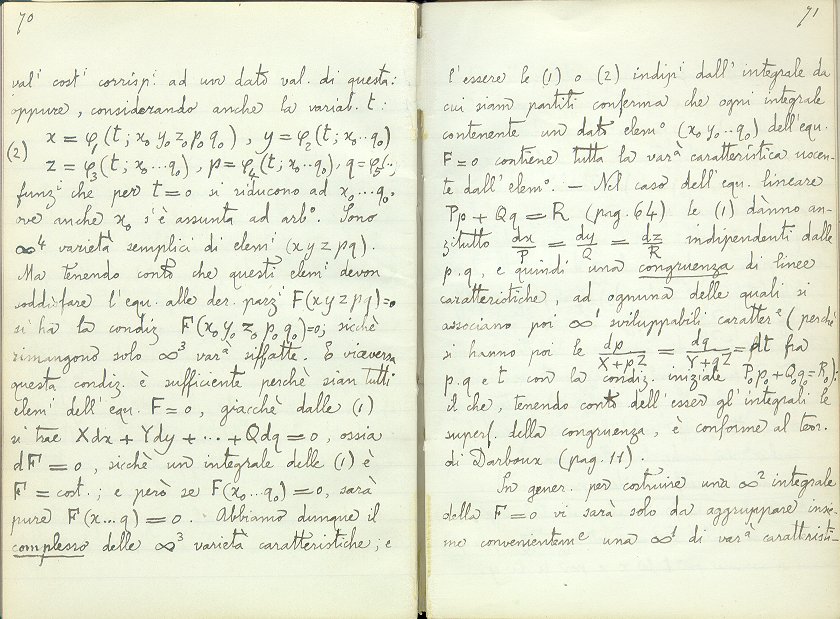 70
val^i cost^i corrisp^i. ad un dato val. di questa:
oppure, considerando anche la variab. t:
(2) x = φ₁(t; x₀ y₀ z₀ p₀ q₀), y = φ₂(t; x₀...q₀)
z = φ₃(t; x₀...q₀), p = φ₄(t; x₀...q₀), q = φ₅(..;
funz^i che per t=0 si riducono ad x₀...q₀,
ove anche x₀ s'è assunta ad arb^o. Sono
∞⁴ varietà semplici di elem^i (x y z p q).
Ma tenendo conto che questi elem^i devon
soddisfare l'equ. alle der. parz^i F(x y z p q)=0
si ha la condiz. F(x₀ y₀ z₀ p₀ q₀)=0; sicchè
rimangono solo ∞³ var^à siffatte. E viceversa
questa condiz. è sufficiente perchè sian tutti
elem^i dell'equ. F=0, giacchè dalle (1)
si trae Xdx + Ydy + ... + Qdq = 0, ossia
dF = 0, sicchè un integrale delle (1) è
F = cost.; e però se F(x₀...q₀) = 0, sarà
pure F(x...q) = 0. Abbiamo dunque il
complesso delle ∞³ varietà caratteristiche; e
71
l'essere le (1) o (2) indip^i dall'integrale da
cui siam partiti conferma che ogni integrale
contenente un dato elem^o (x₀ y₀..q₀) dell'equ.
F=0 contiene tutta la var^à caratteristica uscen-
te dall'elem^o. — Nel caso dell'equ. lineare
Pp + Qq = R (pag. 64) le (1) dànno an-
zitutto dx/P = dy/Q = dz/R indipendenti dalle
p.q, e quindi una congruenza di linee
caratteristiche, ad ognuna delle quali si
associano poi ∞¹ sviluppabili caratter^e (perchè
si hanno poi le dp/(X+pZ) = dq/(Y+qZ) = -dt fra
p.q e t con la condiz. iniziale P₀p₀+Q₀q₀=R₀):
il che, tenendo conto dell'esser gl'integrali le
superf. della congruenza, è conforme al teor.
di Darboux (pag. 11).
In gener. per costruire una ∞² integrale
della F=0 vi sarà solo da aggruppare insie-
me convenientem^e una ∞¹ di var^à caratteristi-